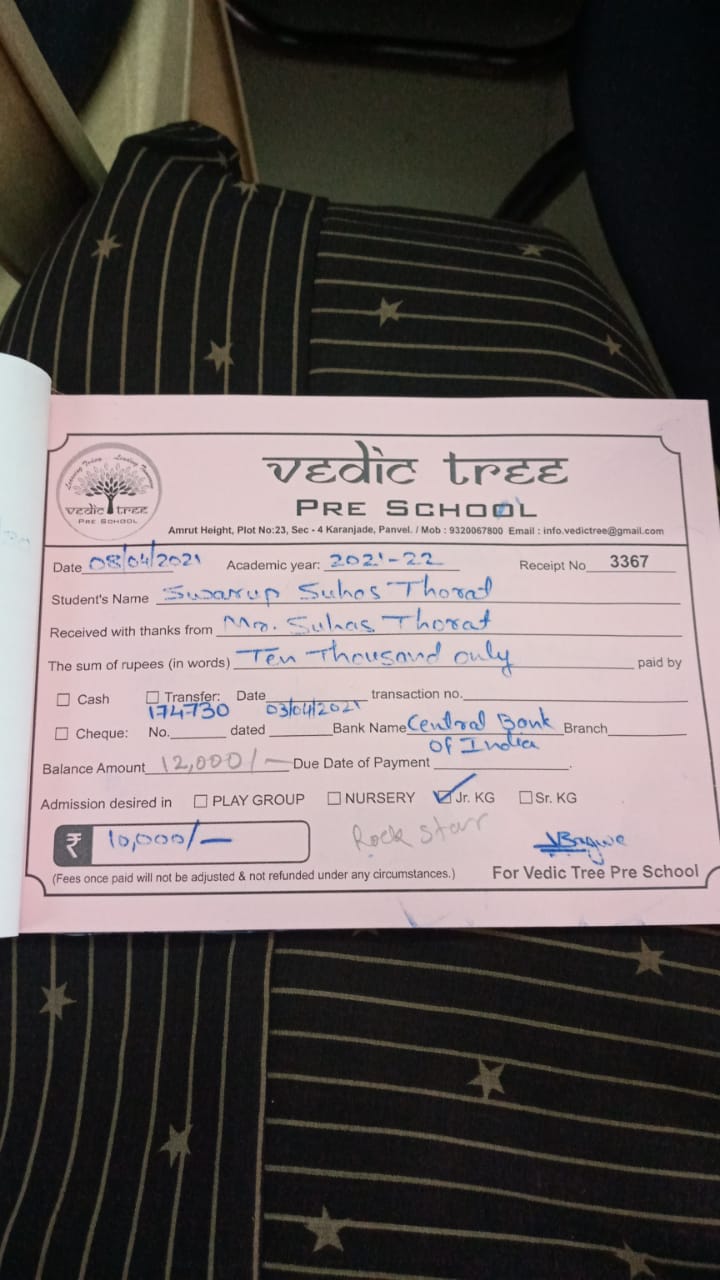 Learning Today Leading Tomorrow
vedic tree
PRE SCHOOL
vedic tree
PRE SCHOOL
Amrut Height, Plot No:23, Sec - 4 Karanjade, Panvel. / Mob : 9320067800 Email : info.vedictree@gmail.com
Date 08/04/2021 Academic year: 2021-22 Receipt No 3367
Student's Name Swarup Suhas Thorat
Received with thanks from Mr. Suhas Thorat
The sum of rupees (in words) Ten Thousand only paid by
Cash Transfer: Date transaction no.
174730 03/04/2021
Cheque: No. dated Bank Name Central Bank Branch
of India
Balance Amount 12,000/- Due Date of Payment
Admission desired in PLAY GROUP NURSERY Jr. KG Sr. KG
₹ 10,000/-
Rock starr
(Fees once paid will not be adjusted & not refunded under any circumstances.) For Vedic Tree Pre School